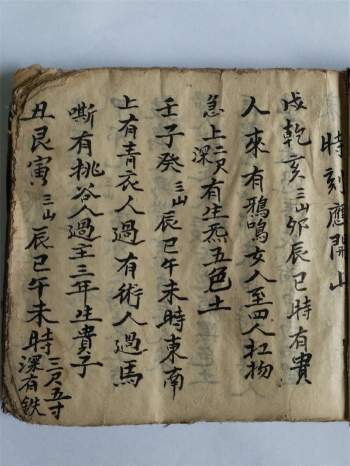 時刻應開山
戌乾亥三山卯辰巳時有貴
人來有鴉鳴女人至四人扛物
急上二尺深有生炁五色土
壬子癸三山辰巳午未時東南
上有青衣人過有術人過馬
嘶有挑谷人過主三年生貴子
丑艮寅三山辰巳午未時三尺五寸深有鉄